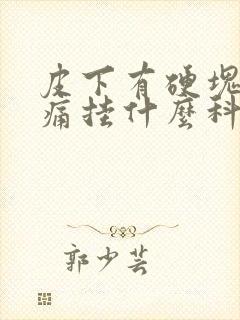 皮下有硬塊
痛挂什麼科
郭少芸